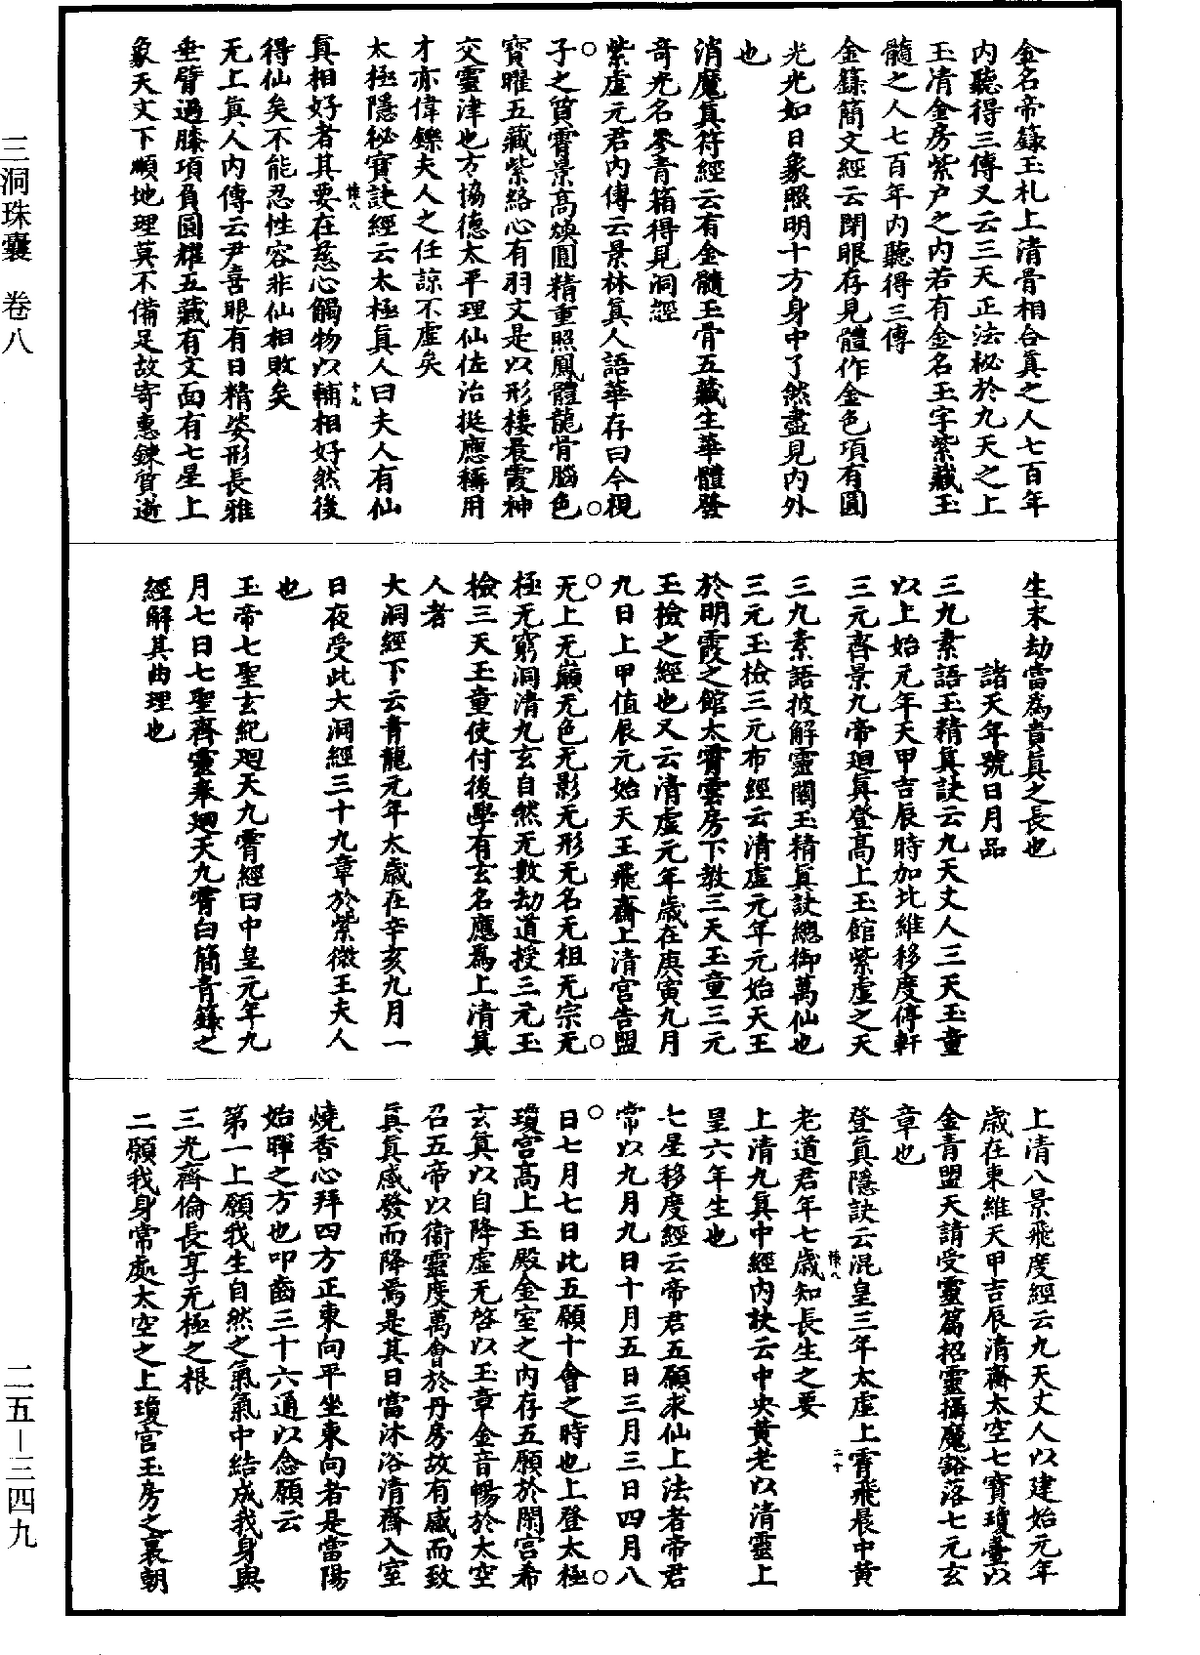 金名帝籙玉札上清骨相合真之人七百年
內聽得三傳又云三天正法秘於九天之上
玉清金房紫户之內若有金名玉字紫藏玉
髓之人七百年內聽得三傳
金籙簡文經云閉眼存見體作金色項有圓
光光如日象照明十方身中了然盡見內外
也
消魔真符經云有金髓玉骨五藏生華體發
奇光名參青箱得見洞經
紫虛元君內傳云景林真人語華存曰今視
子之質霄景高煥圓精重照鳳體龍骨腦色
寶曜五藏紫絡心有羽文是以形棲晨霞神
交靈津也方協德太平理仙佐治挺應稱用
才亦偉鑠夫人之任諒不虛矣
太極隱祕寶訣經云太極真人曰夫人有仙
真相好者其要在慈心觸物以輔相好然後
得仙矣不能忍性容非仙相敗矣
无上真人內傳云尹喜眼有日精姿形長雅
垂臂過膝項負圓耀五藏有文面有七星上
象天文下順地理莫不備足故寄惠鍊質逝
生末劫當為貴真之長也
諸天年號日月品
三九素語玉精真訣云九天丈人三天玉童
以上始元年天甲吉辰時加北維移度停軒
三元齊景九帝迴真登高上玉館紫虛之天
三九素語披解靈關玉精真訣總御萬仙也
三元玉檢三元布經云清虛元年元始天王
於明霞之館太霄雲房下教三天玉童三元
玉檢之經也又云清虛元年歲在庚寅九月
九日上甲值辰元始天王飛齋上清宮告盟
无上无巔无色无影无形无名无祖无宗无
極无窮洞清九玄自然无數劫道授三元玉
檢三天玉童使付後學有玄名應為上清真
人者
大洞經下云青龍元年太歲在辛亥九月一
日夜受此大洞經三十九章於紫微王夫人
也
玉帝七聖玄紀迴天九霄經曰中皇元年九
月七日七聖齊靈奉迴天九霄白簡青籙之
經解其曲理也
上清八景飛度經云九天丈人以建始元年
歲在東維天甲吉辰清齋太空七寶瓊臺以
金青盟天請受靈篇招靈攝魔豁落七元玄
章也
登真隱訣云混皇三年太虛上霄飛晨中黃
老道君年七歲知長生之要
上清九真中經內訣云中央黃老以清靈上
皇六年生也
七星移度經云帝君五願求仙上法者帝君
常以九月九日十月五日三月三日四月八
日七月七日此五願十會之時也上登太極
瓊宮高上玉殿金室之內存五願於閑宮希
玄真以自降虛无啓以玉章金音暢於太空
召五帝以衞靈度萬會於丹房故有感而致
真真感發而降焉是其日當沐浴清齋入室
燒香心拜四方正東向平坐東向者是當陽
始暉之方也叩齒三十六通以念願云
第一上願我生自然之氣氣中結成我身與
三光齊倫長享无極之根
二願我身常處太空之上瓊宮玉房之裏朝
三洞珠囊 卷八
二五－三四九